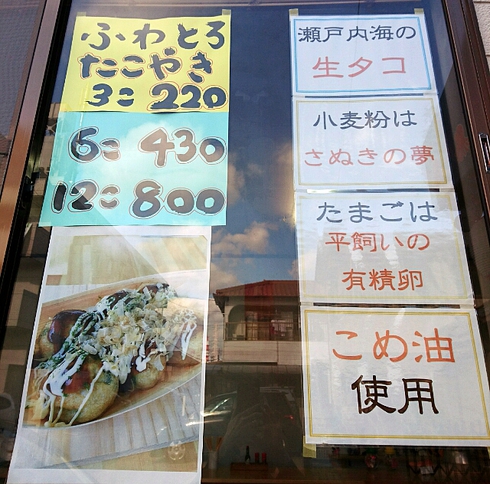 ふわとろ
たこやき
3コ 220
6コ 430
12コ 800
瀬戸内海の
生タコ
小麦粉は
さぬきの夢
たまごは
平飼いの
有精卵
こめ油
使用